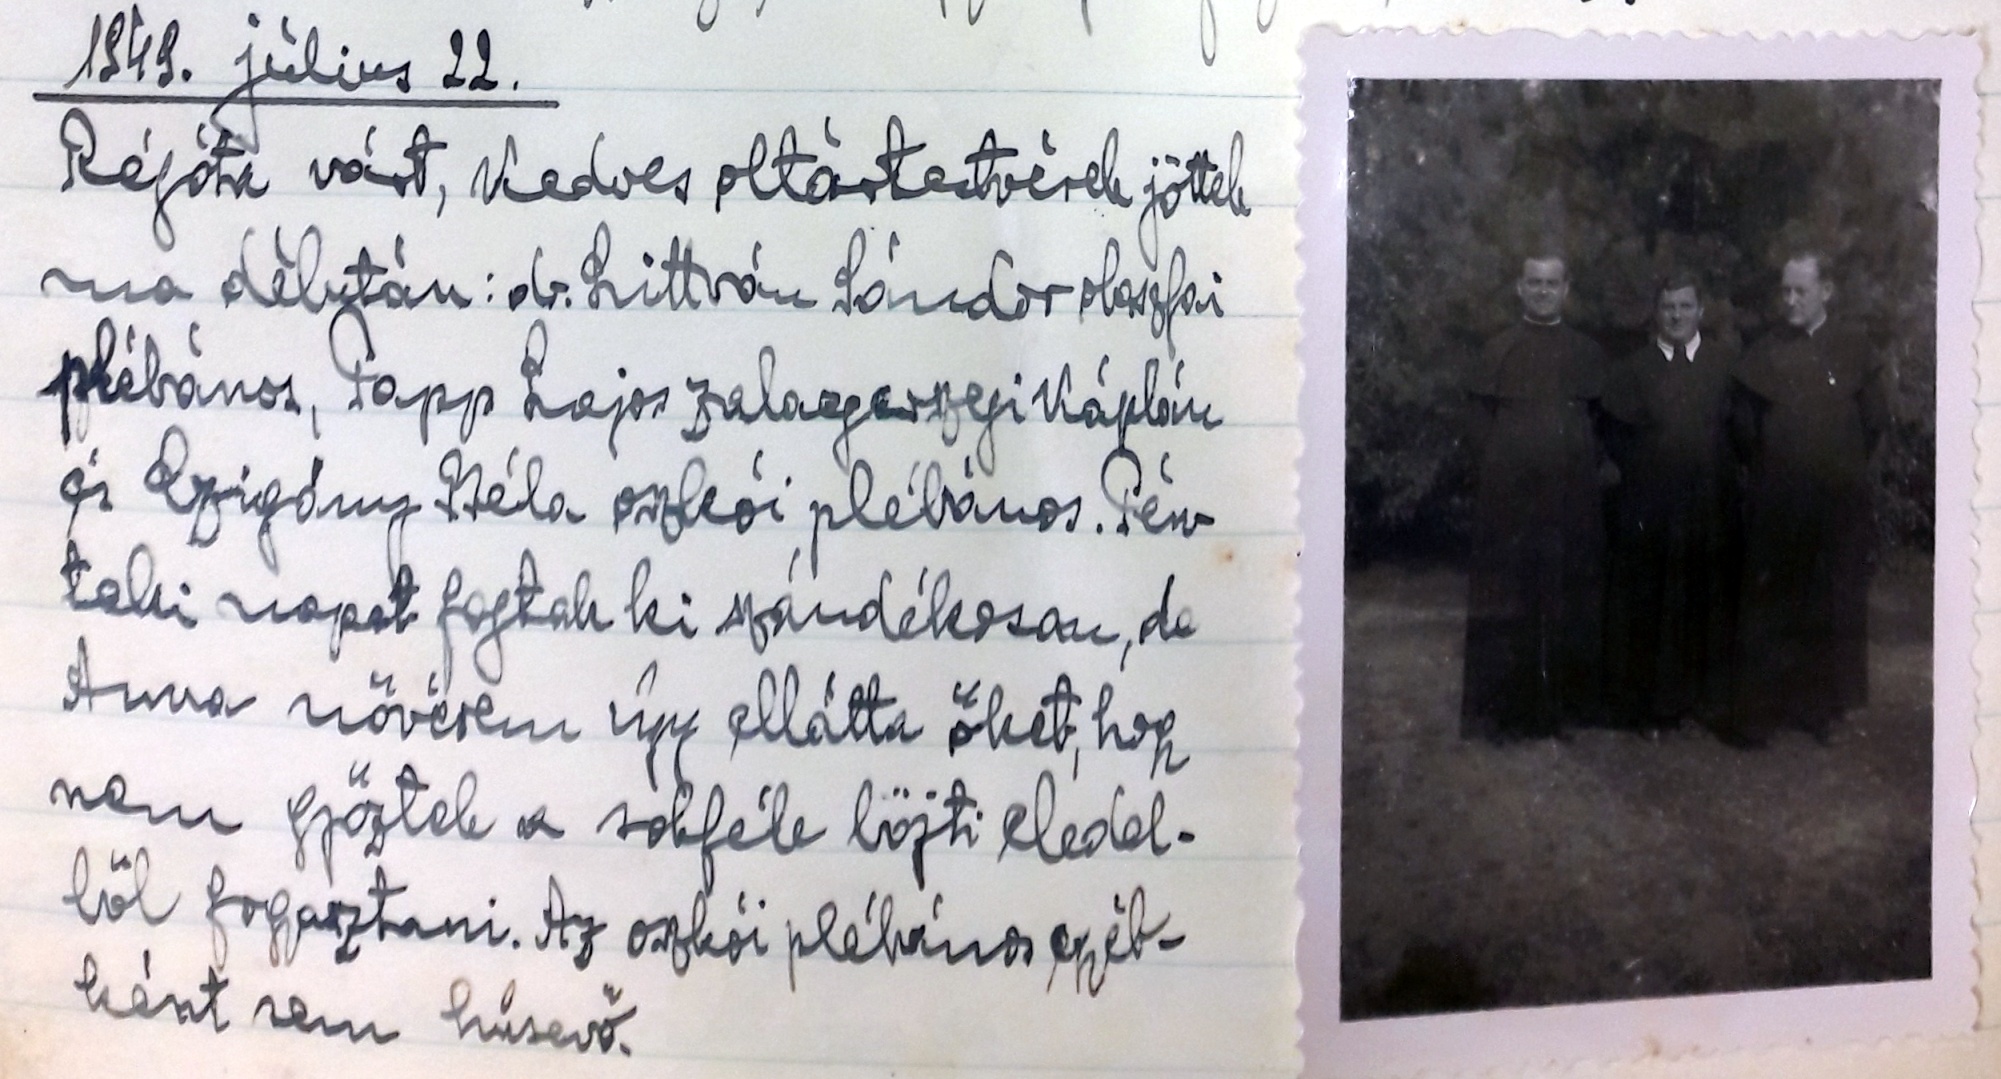 1949. július 22.
Régóta várt, kedves oltártestvérek jöttek
ma délután: dr. Littván Sándor olaszfai
plébános, Papp Lajos zalaegerszegi káplán
és Czigány Béla oszkói plébános. Pén-
teki napot fogtak ki szándékosan, de
Anna nővérem úgy ellátta őket, hogy
nem győztek a sokféle böjti eledel-
ből fogyasztani. Az oszkói plébános egyéb-
ként sem húsevő.